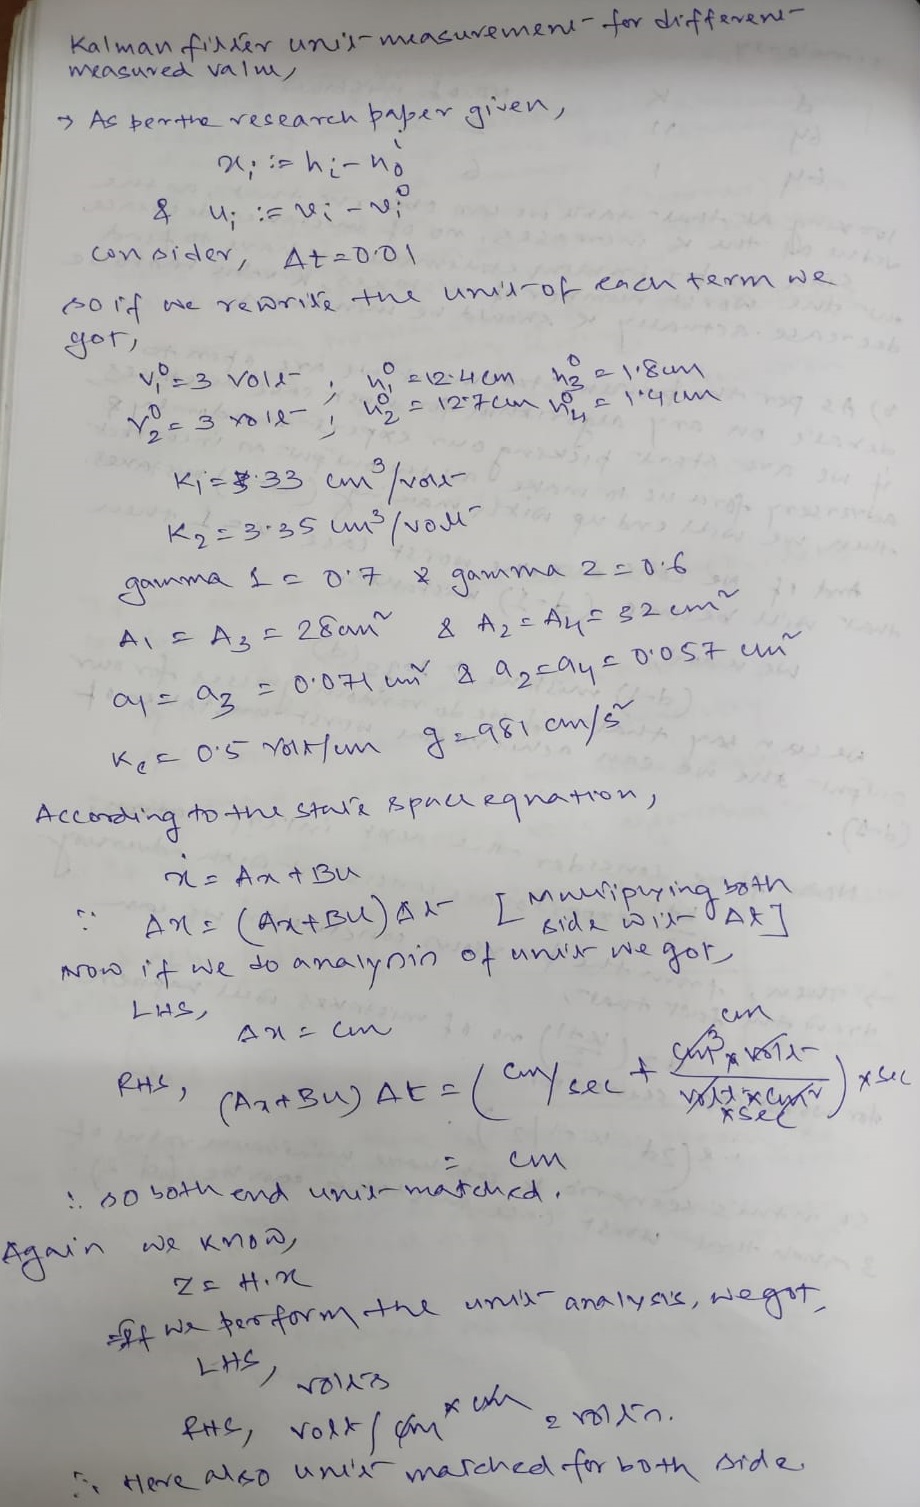 Kalman filter unit measurement for different
measured value,
→ As per the research paper given,
x_i := h_i - h_i^0
& u_i := v_i - v_i^0
consider, Δt = 0.01
so if we rewrite the unit of each term we
got,
v_1^0 = 3 volt ; h_1^0 = 12.4 cm h_3^0 = 1.8 cm
v_2^0 = 3 volt ; h_2^0 = 12.7 cm h_4^0 = 1.4 cm
K_1 = 3.33 cm^3/volt
K_2 = 3.35 cm^3/volt
gamma 1 = 0.7 & gamma 2 = 0.6
A_1 = A_3 = 28 cm^2 & A_2 = A_4 = 32 cm^2
a_1 = a_3 = 0.071 cm^2 & a_2 = a_4 = 0.057 cm^2
K_c = 0.5 volt/cm g = 981 cm/s^2
According to the state space equation,
ẋ = Ax + Bu
∴ Δx = (Ax + Bu) Δt [Multiplying both
side with Δt]
Now if we do analysis of unit we got,
LHS,
Δx = cm
cm
RHS, (Ax + Bu) Δt = (cm/sec + cm^3 × volt / volt × cm^2 × sec) × sec
= cm
∴ so both end unit matched.
Again we know,
Z = H.x
If we perform the unit analysis, we got,
LHS, volts
RHS, volt/cm × cm = volts.
∴ Here also unit matched for both side